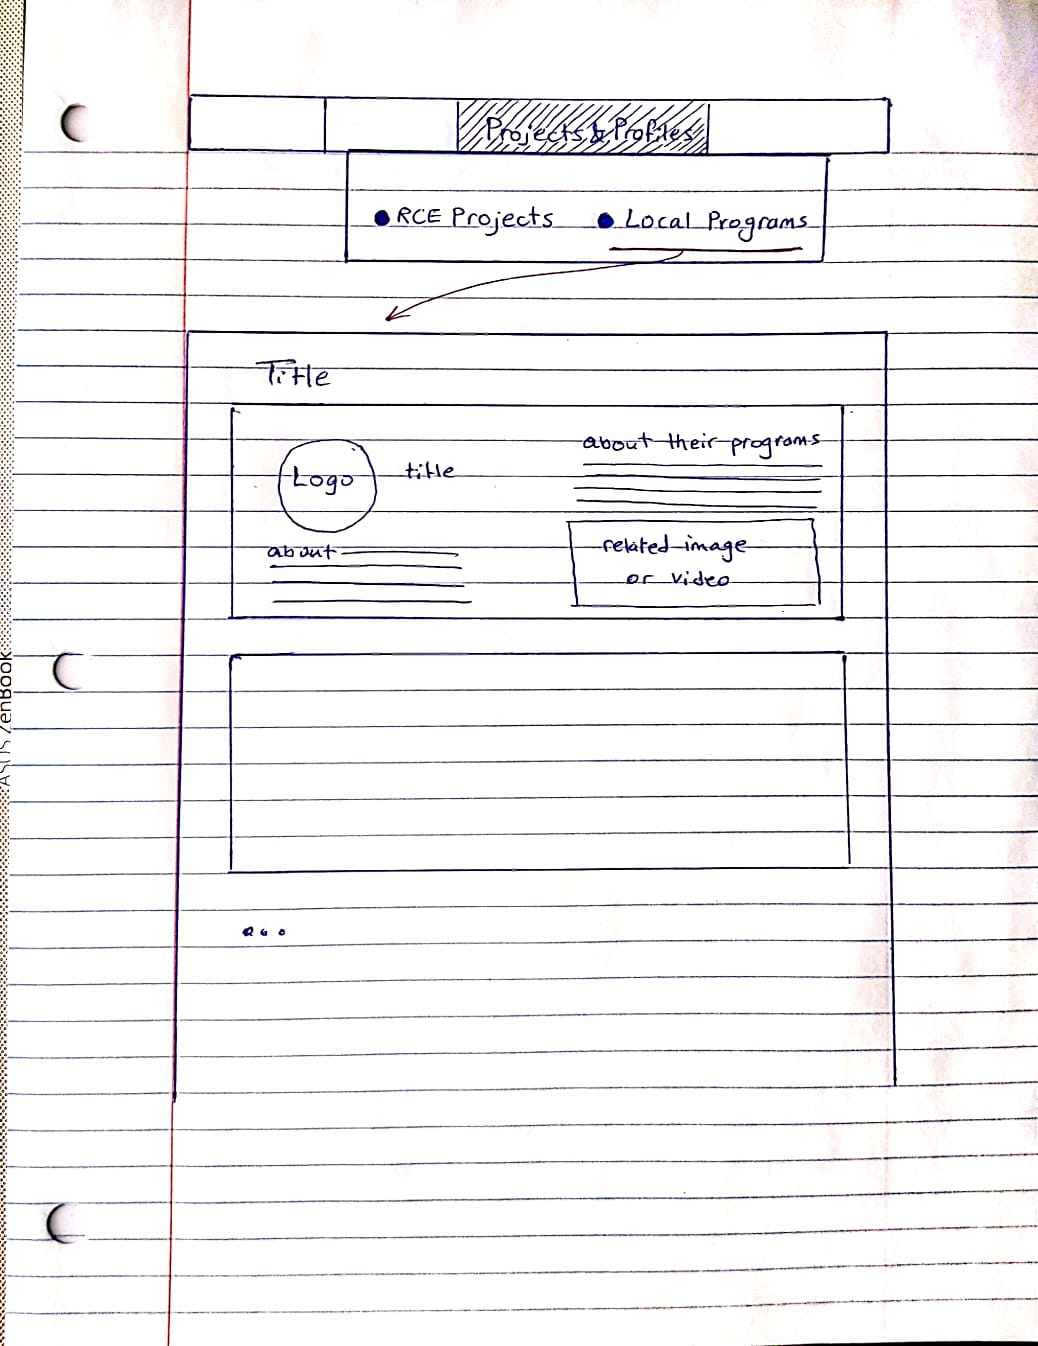 Projects & Profiles
● RCE Projects ● Local Programs
Title
Logo
title
about
about their programs
related image
or video
...
ASUS ZenBook